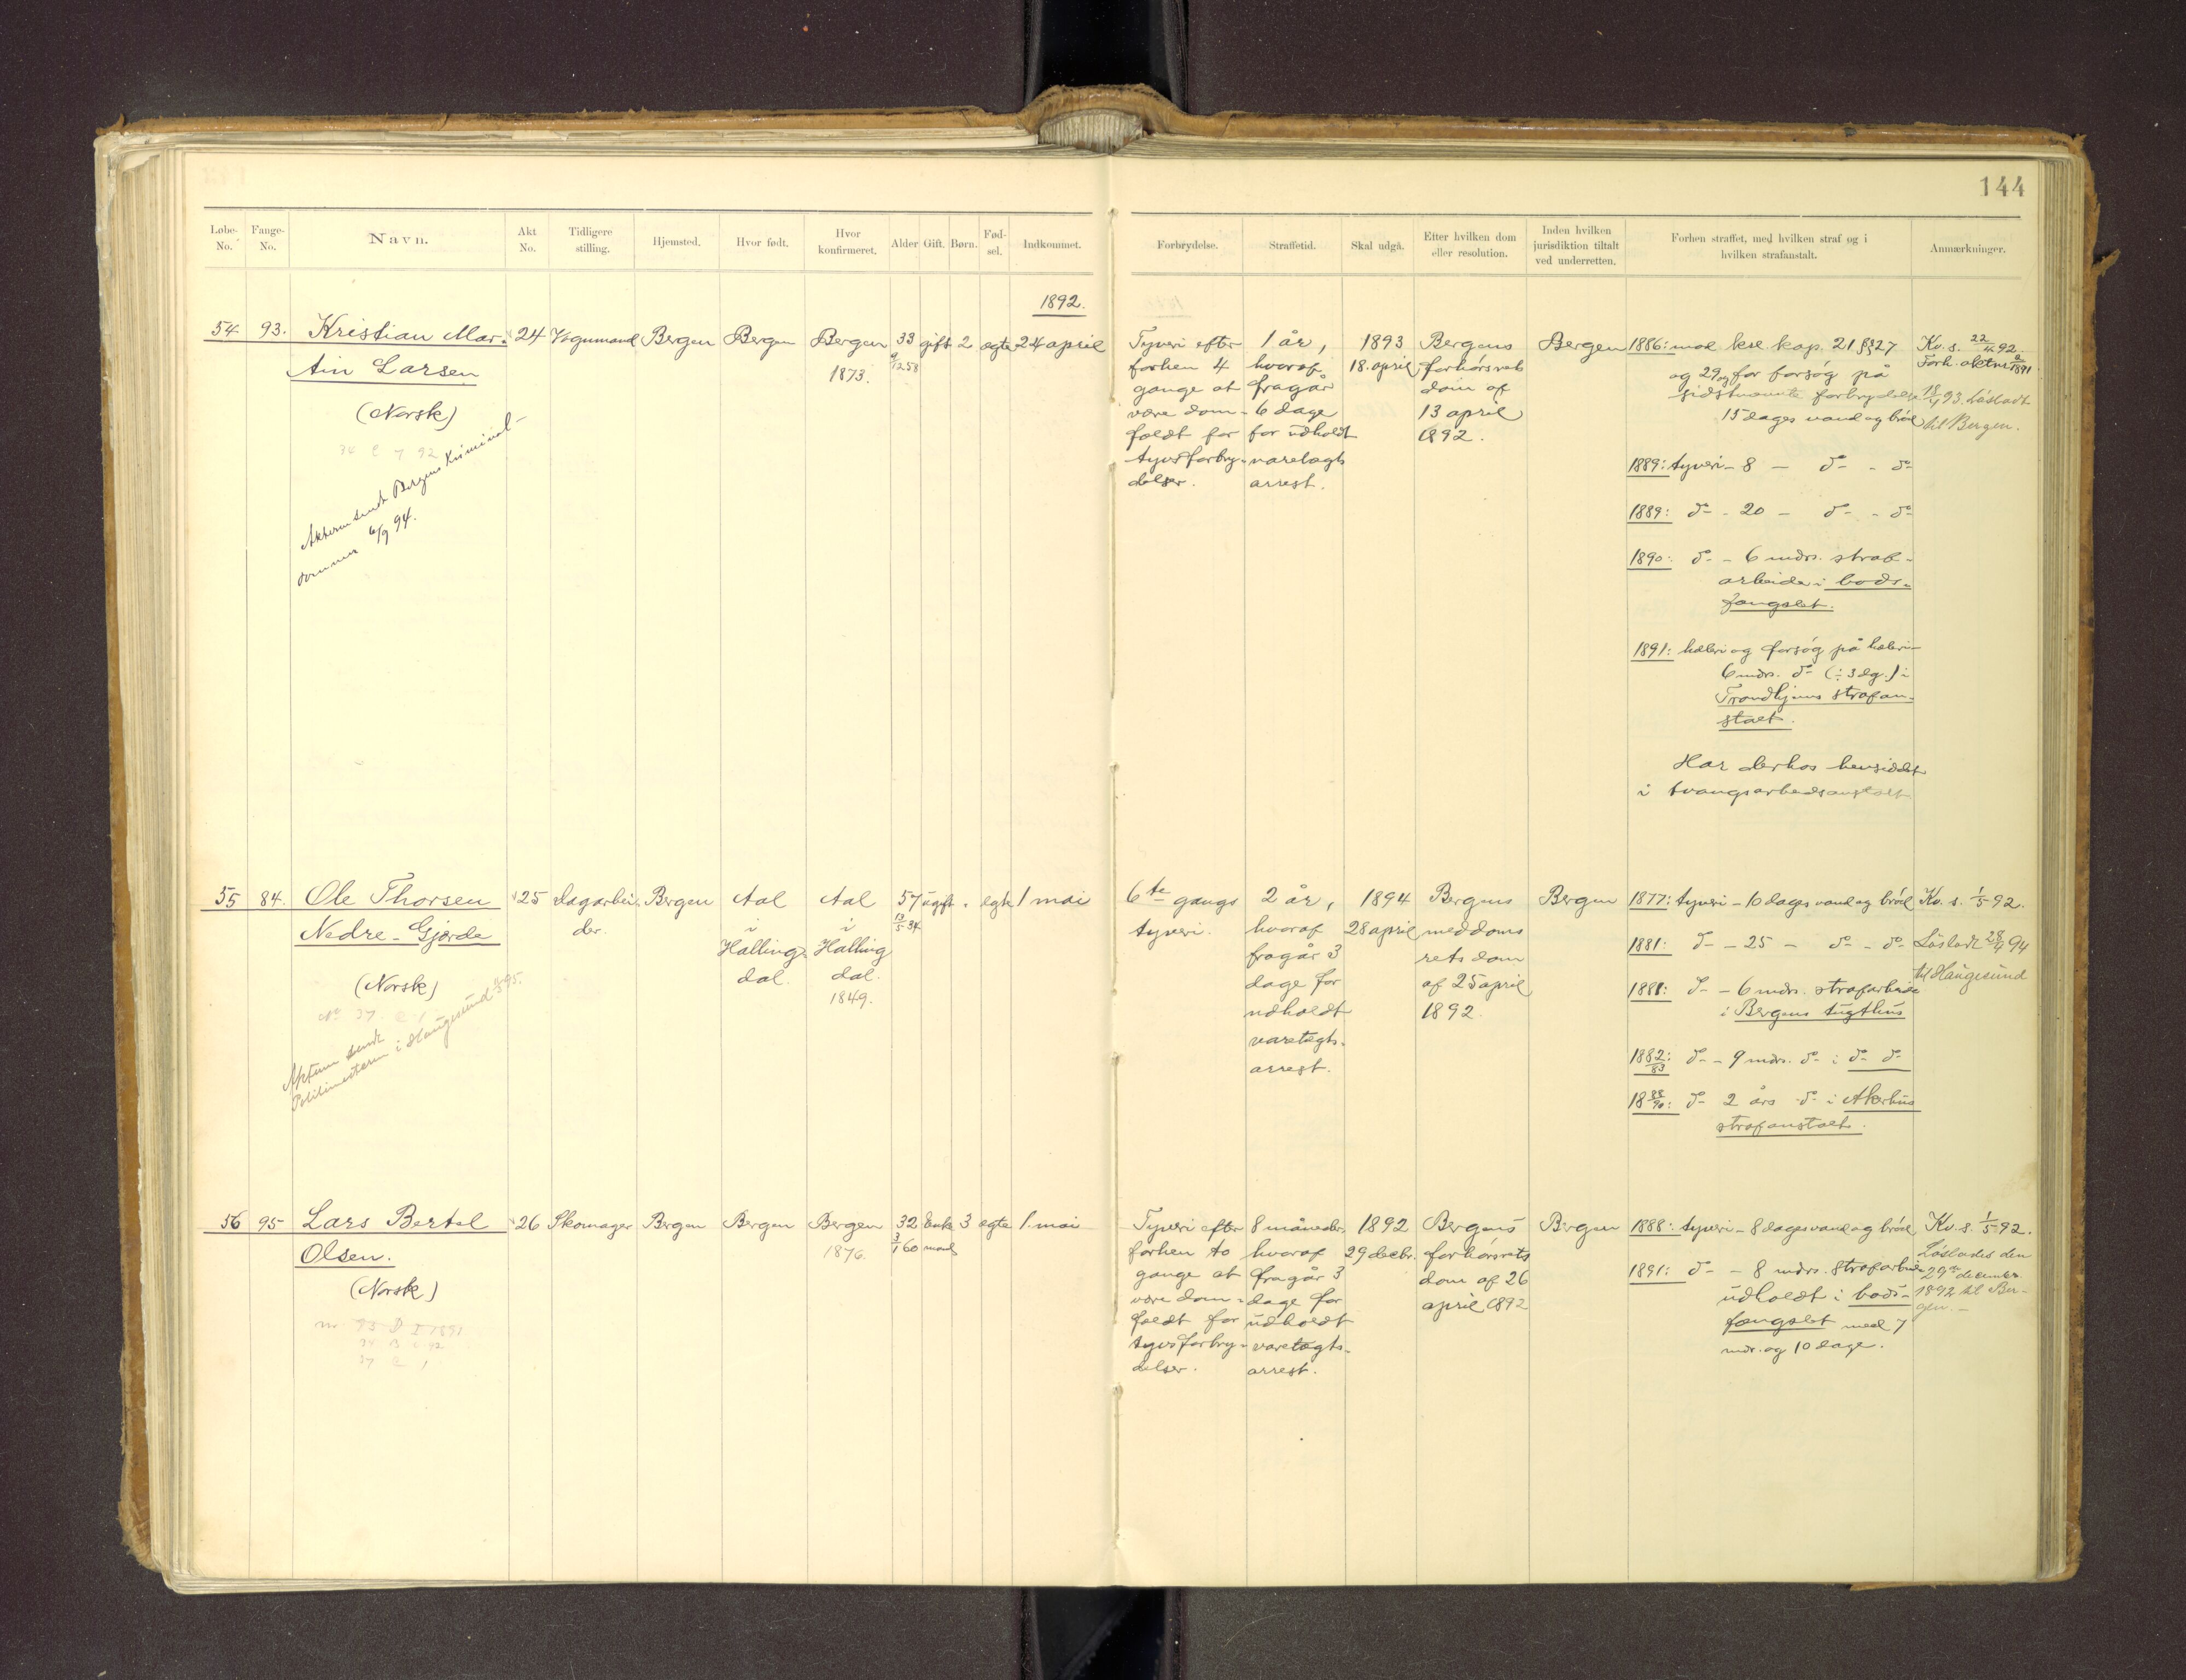 144
Løbe-No. Fange-No. Navn. Akt No. Tidligere stilling. Hjemsted. Hvor født. Hvor konfirmeret. Alder Gift. Børn. Fødsel. Indkommet. Forbrydelse. Straffetid. Skal udgå. Efter hvilken dom eller resolution. Inden hvilken jurisdiktion tiltalt ved underretten. Forhen straffet, med hvilken straf og i hvilken strafanstalt. Anmærkninger.
1892.
54 93. Kristian Mar-
tin Larsen
(Norsk)
34 C 7 92
Akterne sendt Bergens Kriminal-
dommer 6/9 94.
24 Vognmand Bergen Bergen Bergen
1873.
33
9/12 58
gift 2 ægte 24 april
Tyveri efter
forhen 4
gange at
være dom-
fældt for
tyvsforbry-
delser.
1 år,
hvoraf
fragår
6 dage
for udholdt
varetægts
arrest.
1893
18. april
Bergens
forhørsrets
dom af
13 april
1892.
Bergen
1886: mod krl. kap. 21 §§ 27
og 29 og for forsøg på
sidstnævnte forbrydelse
15 dages vand og brød
1889: tyveri - 8 - do - do
1889: do - 20 - do - do
1890: do - 6 mdrs. straf-
arbeide i bods-
fængslet.
1891: hæleri og forsøg på hæleri -
6 mdrs. do (÷ 3 dg.) i
Trondhjems strafan-
stalt.
Har derhos hensiddet
i tvangsarbeidsanstalt
Kv. s. 22/4 92.
Forh. aktnr 2/1891
18/4 93. Løsladt
til Bergen.
55 84. Ole Thorsen
Nedre-Gjærde
(Norsk)
No 37 C 1
Akterne sendt
Politimesteren i Haugesund 95.
25 dagarbei-
der.
Bergen
Aal
i
Halling-
dal.
Aal
i
Halling
dal.
1849.
57
13/5 34
ugift - ægte 1 mai
6te gangs
tyveri.
2 år,
hvoraf
fragår 3
dage for
udholdt
varetægts-
arrest.
1894
28 april
Bergens
meddoms
rets dom
af 25 april
1892.
Bergen
1877: tyveri - 10 dages vand og brød
1881: do - 25 - do - do
1881: do - 6 mdrs. strafarbeide
i Bergens tugthus
1882/83: do - 9 mdrs. do i do do
18 88/90: do 2 års do i Akerhus
strafanstalt.
Kv. s. 1/5 92.
Løsladt 28/4 94
til Haugesund
56 95 Lars Bertel
Olsen.
(Norsk)
nr 93 D I 1891
37 C 1
26 Skomager Bergen Bergen Bergen
1876.
32
3/1 60
Enke
mand
3 ægte 1. mai
Tyveri efter
forhen to
gange at
være dom-
fældt for
tyvsforbry-
delser.
8 måneder,
hvoraf
fragår 3
dage for
udholdt
varetægts-
arrest.
1892
29 decbr.
Bergens
forhørsrets
dom af 26
april 1892
Bergen
1888: tyveri - 8 dages vand og brød
1891: do - 8 mdrs. strafarbeide
udholdt i bods-
fængslet med 7
mdr. og 10 dage.
Kv. s. 1/5 92.
Løslades den
29de december
1892 til Ber-
gen. -